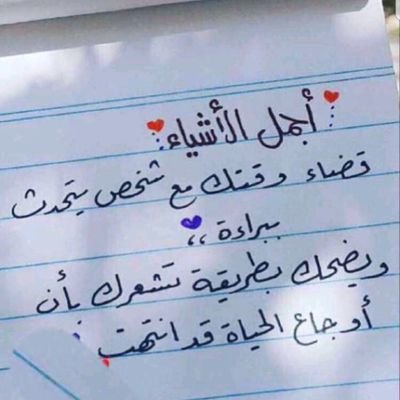 أجمل الأشياء:
قضاء وقتك مع شخص يتحدث
ببراءة ،،
ويضحك بطريقة تشعرك بأن
أوجاع الحياة قد انتهت